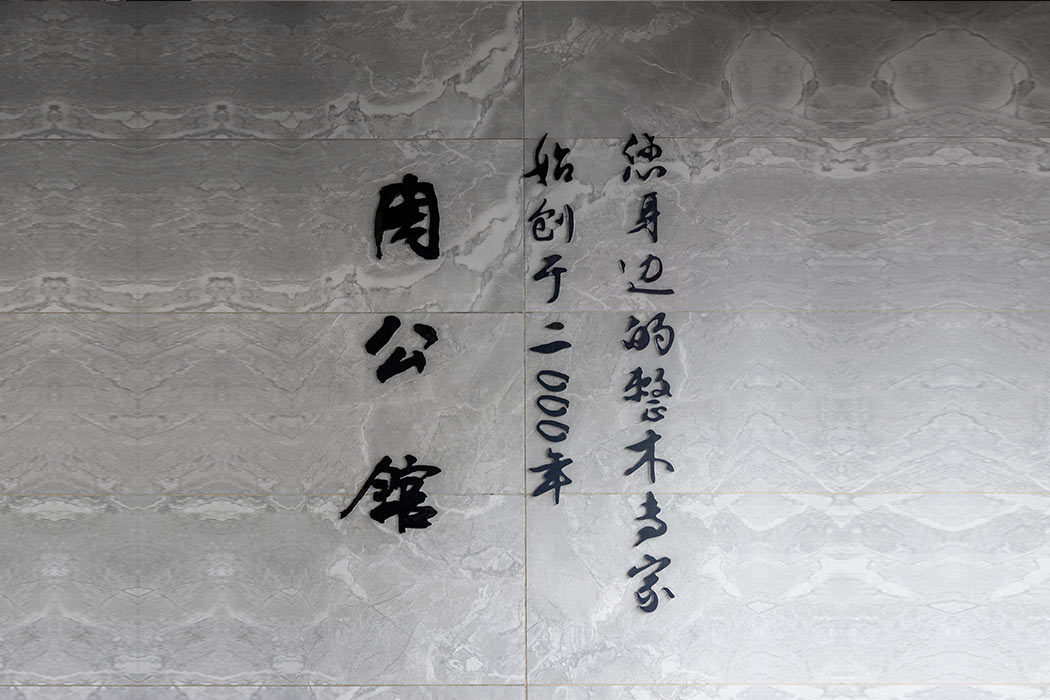 您身边的整木专家
始创于二000年
周公館